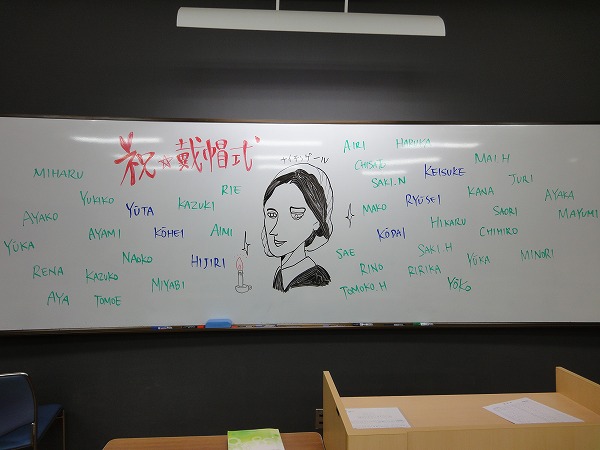 祝☆戴帽式
ナイチンゲール
MIHARU
YUKIKO
RIE
AYAKO
YŪTA
KAZUKI
YŪKA
AYAMI
KŌHEI
AIMI
NAOKO
HIJIRI
RENA
KAZUKO
MIYABI
AYA
TOMOE
AIRI
HARUKA
CHISATO
KEISUKE
MAI.H
SAKI.N
JURI
MAKO
RYŪSEI
KANA
AYAKA
SAORI
MAYUMI
KŌDAI
HIKARU
CHIHIRO
SAE
SAKI.H
YŪKA
MINORI
RINO
RIRIKA
TOMOKO.H
YŌKO